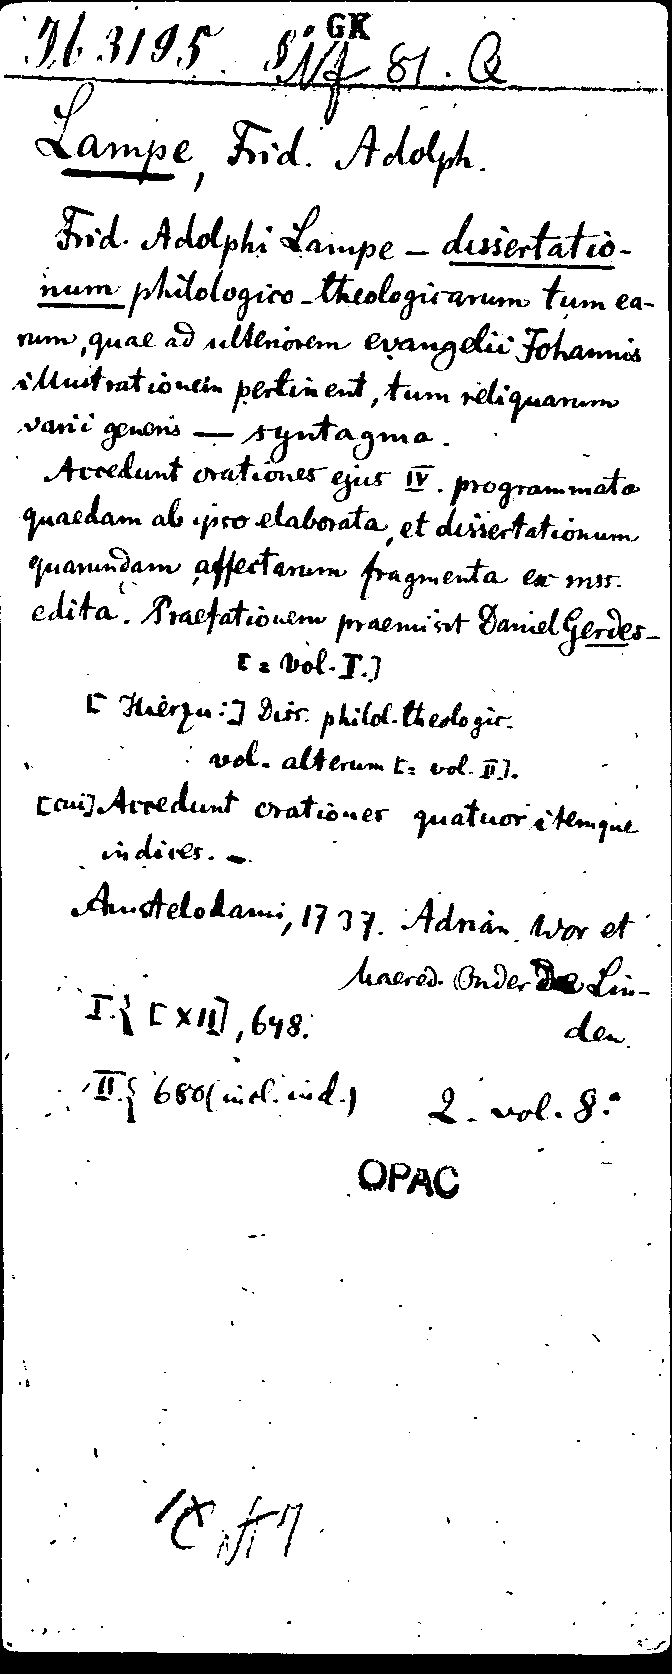 Jb 3195. GK
Nf 81. Q
Lampe, Frid. Adolph.
Frid. Adolphi Lampe – dissertatio-
num philologico-theologicarum tum ea-
rum, quae ad ulteriorem evangelii Johannis
illustrationem pertinent, tum reliquarum
varii generis — syntagma.
Accedunt orationes ejus IV. programmata
quaedam ab ipso elaborata, et dissertationum
quarundam affectarum fragmenta ex mss.
edita. Praefationem praemisit Daniel Gerdes –
[= vol. I.]
[Hierzu:] Diss. philol. theologic.
vol. alterum [= vol. II].
[cui] Accedunt orationes quatuor itemque
indices. –
Amstelodami, 1737. Adrian. Wor et
haered. Onder De Lin-
I.{ [XII], 648. den.
II.{ 680 (incl. ind.) 2. vol. 8.°
OPAC